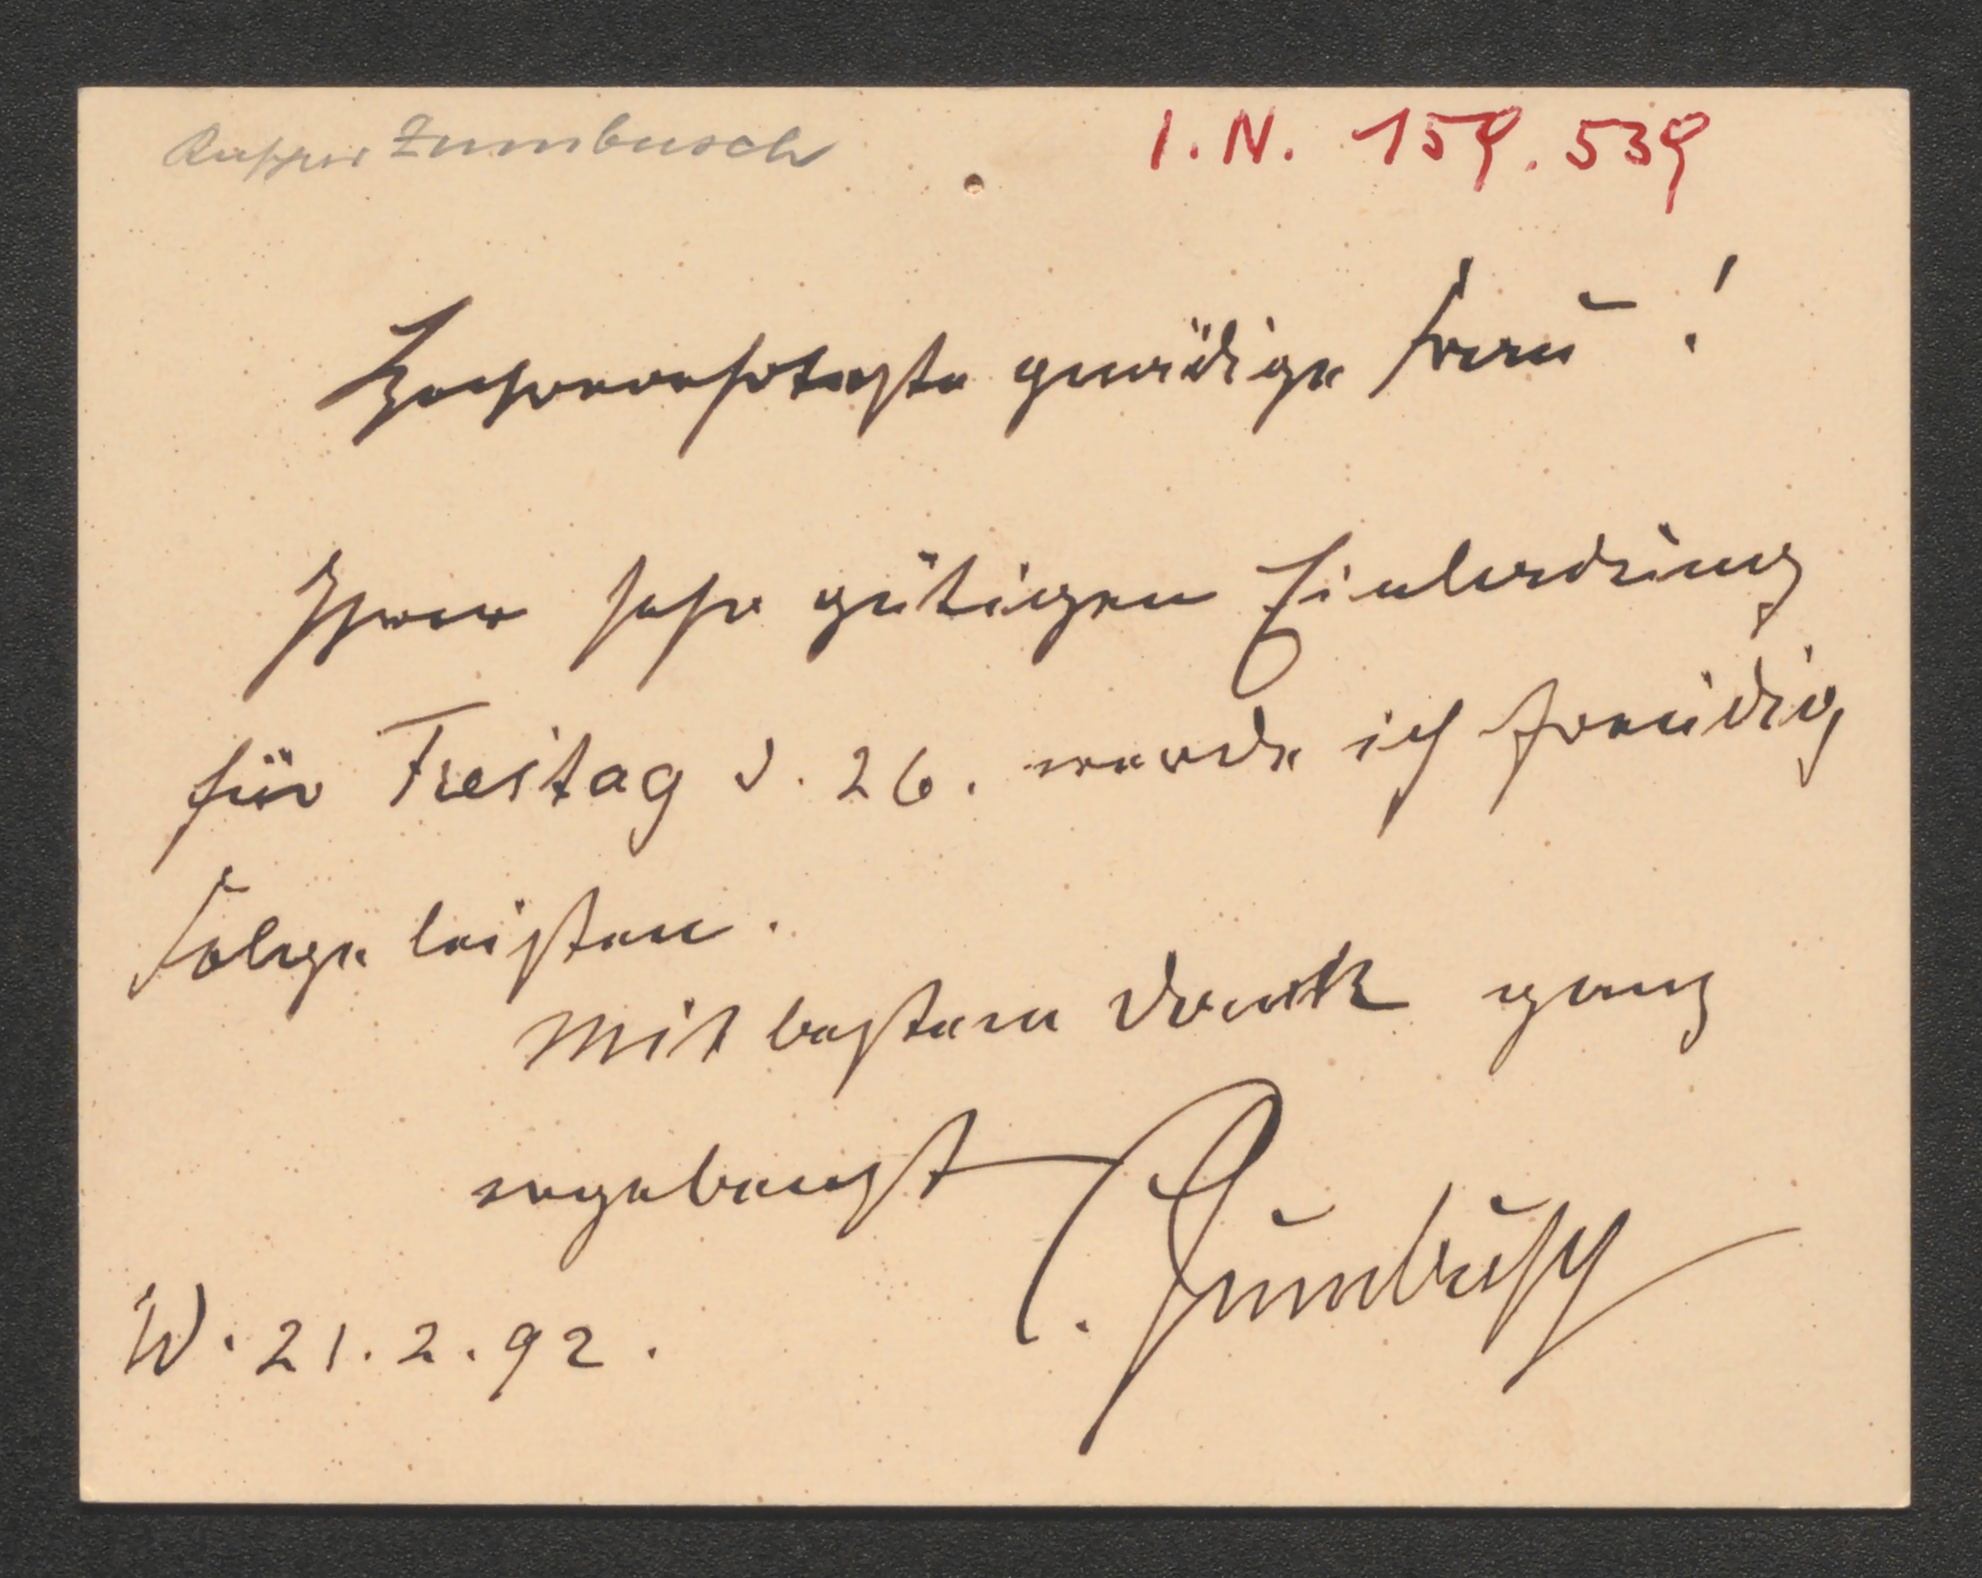 Zumbusch
I. N. 159.539
Hochverehrteste gnädige Frau!
Ihrer sehr gütigen Einladung
für Freitag d. 26. werde ich freudig
Folge leisten.
Mit bestem Dank ganz
ergebenst
C. Zumbusch
W. 21.2.92.